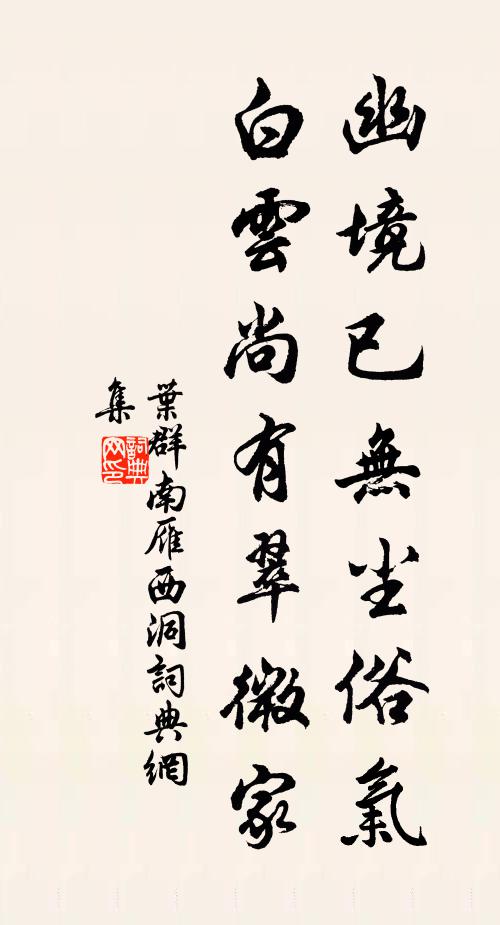 幽境已無尘俗氣
白雲尚有翠微家
葉群南雁西洞詞典網
集
詞典网印